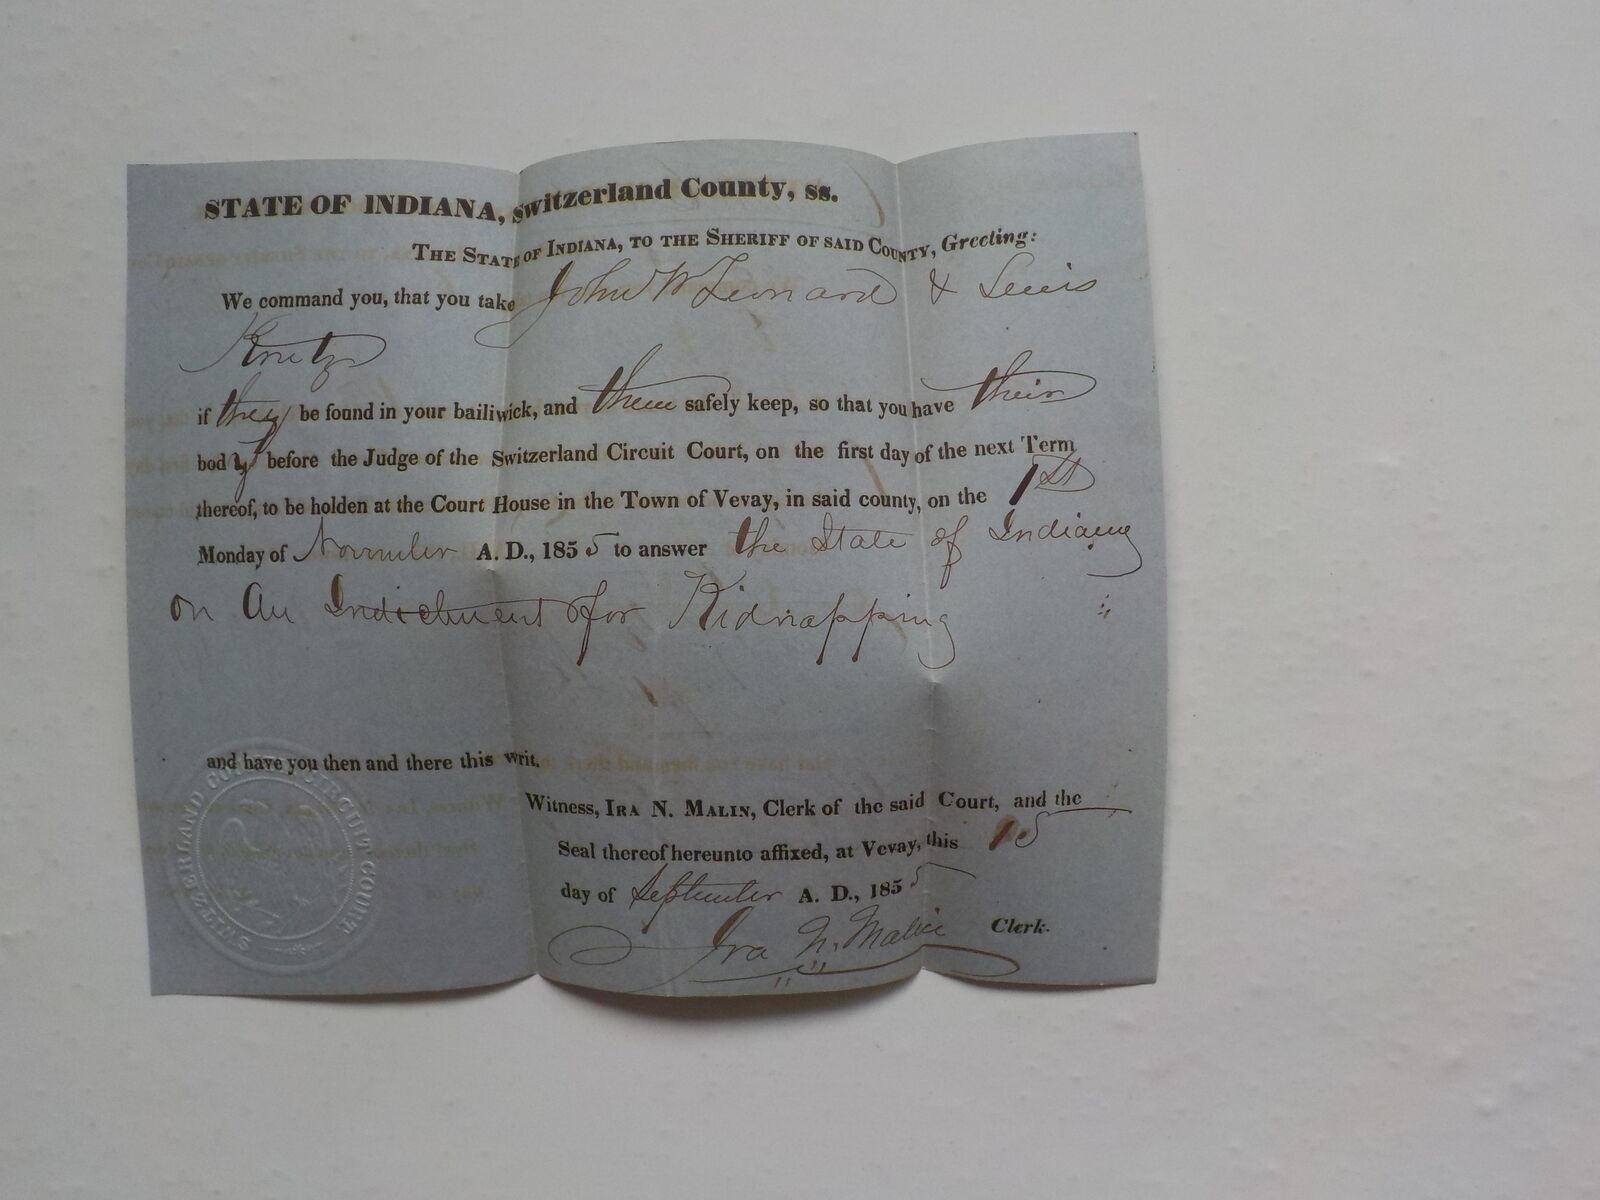 STATE OF INDIANA, Switzerland County, ss.
THE STATE OF INDIANA, TO THE SHERIFF OF SAID COUNTY, Greeting:
We command you, that you take John W Leonard & Lewis
if they be found in your bailiwick, and them safely keep, so that you have their
body before the Judge of the Switzerland Circuit Court, on the first day of the next Term
thereof, to be holden at the Court House in the Town of Vevay, in said county, on the 1st
Monday of November A. D., 1855 to answer the State of Indiana
on An Indictment for Kidnapping
and have you then and there this writ.
Witness, IRA N. MALIN, Clerk of the said Court, and the
Seal thereof hereunto affixed, at Vevay, this 15
day of September A. D., 1855
Ira N. Malin Clerk.
SWITZERLAND COUNTY CIRCUIT COURT